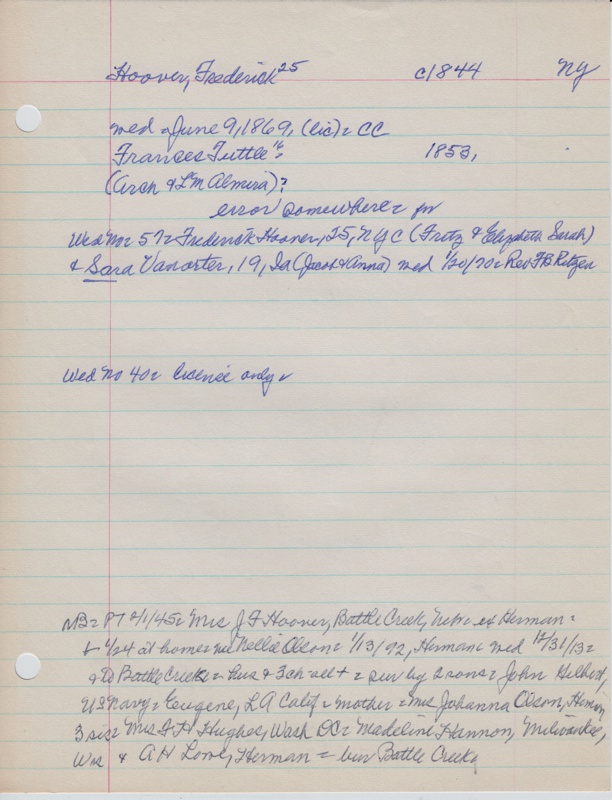 Hoover, Frederick 25 c1844 NY
med - June 9, 1869, (lic) = CC
Frances Tuttle 16 = 1853,
(Arch & L M Almira)?
error somewhere =
Wed No = 57 = Frederick Hoover, 25, NYC (Fritz & Elizabeth Sarah)
& Sara Vanorter, 19, Ia (Jacob & Anna) med 1/20/70 = Rev FB Ritzen
Wed No 40 = license only
NB = PT 2/1/45 = Mrs J F Hoover, Battle Creek, Nebr = ex Herman =
1/24 at home = nee Nellie Olson = 1/13/92, Herman = med 12/31/13 =
& to Battle Creek = hus & 3 ch - all + = sur by 2 sons = John Hilbert,
US Navy = Eugene, LA Calif = mother = Mrs Johanna Olson, Herman,
3 sis = Mrs F H Hughes, Wash DC = Madeline Hannon, Milwaukee,
Wis & A H Lowe, Herman = bur Battle Creek